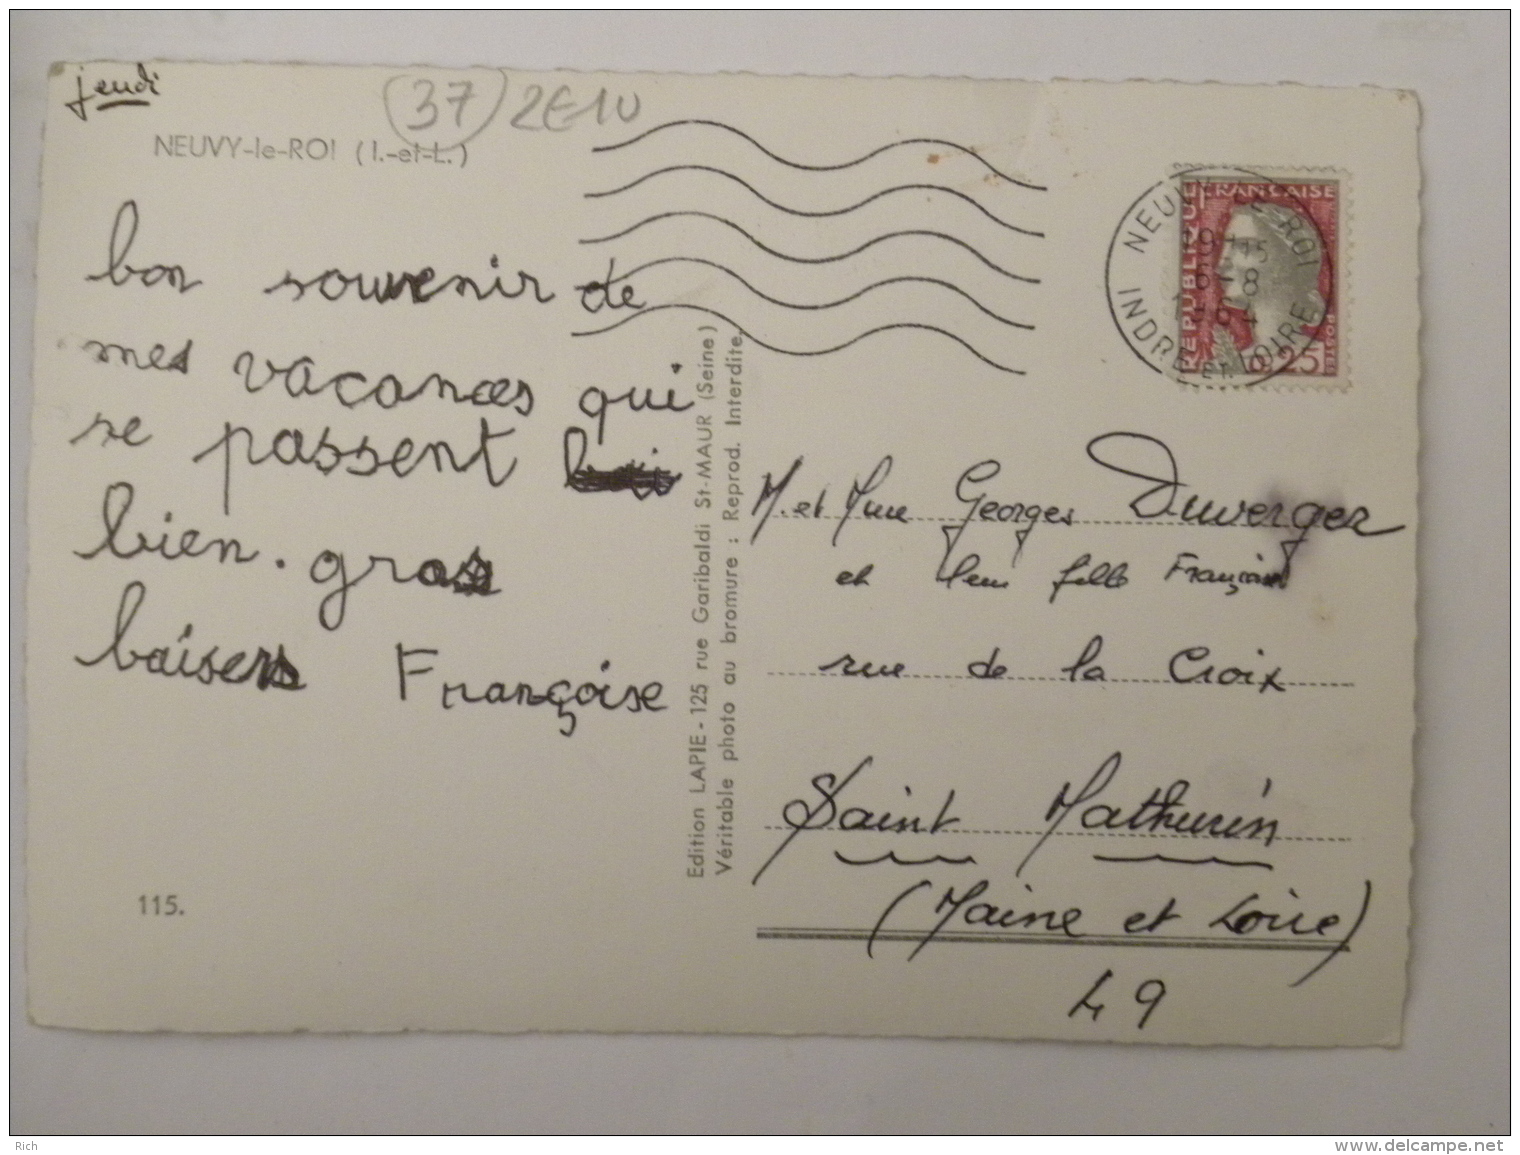 jeudi
37 2E10
NEUVY-le-ROI (I.-et-L.)
bon souvenir de
mes vacances qui
se passent
bien. gros
baisers Françoise
115.
Edition LAPIE - 125 rue Garibaldi St-MAUR (Seine)
Véritable photo au bromure : Reprod. Interdite.
NEUVY-LE-ROI
19H15
6-8
1964
INDRE ET LOIRE
REPUBLIQUE FRANÇAISE
0,25
POSTES
M. et Mme Georges Duverger
et leur fille
rue de la Croix
Saint Mathurin
(Maine et Loire)
49
Rich
www.delcampe.net